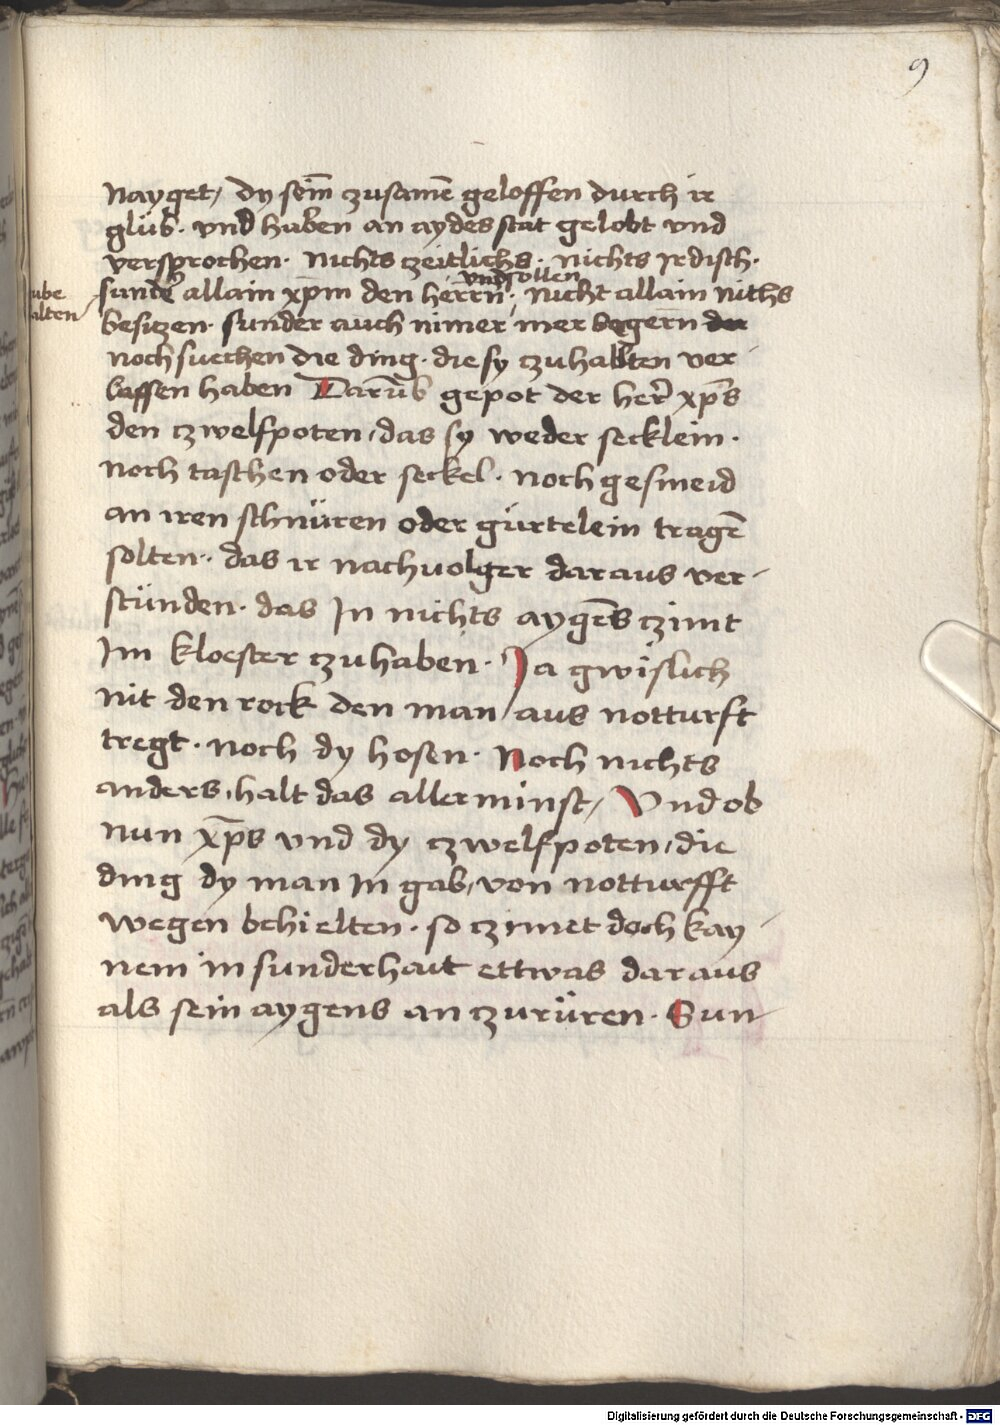 9
Nayget, dy sem̄ zusamē geloffen durch ir
glüb. vnd haben an aydes stat gelobt vnd
versprochen. Nichts czeitlichs. nichts irdisch.
vnd sollen
sunder allain xp̄m den herrn, nicht allain niths
besitzen. sunder auch nimer mer begern der
noch suechen die ding. die sy czu halten ver-
lassen haben Darūb gepot der her̄ xp̄s
den czwelfpoten, das sy weder secklein.
noch taschen oder seckel. noch gesmeid
an iren schnüren oder gürtelein tragē
solten. das ir nachuolger daraus ver-
stünden. das In nichts aygēs czimt
Im kloester czu haben. Ja gwislich
nit den rock den man aus notturft
tregt. noch dy hosen. Noch nichts
anders, halt das allerminst, Vnd ob
nun xp̄s vnd dy czwelfpoten, die
ding dy man In gab, von notturfft
wegen behielten. so czimet doch kay-
nem in sunderhait ettwas daraus
als sein aygens an czurüren. Sun-
Digitalisierung gefördert durch die Deutsche Forschungsgemeinschaft - DFG